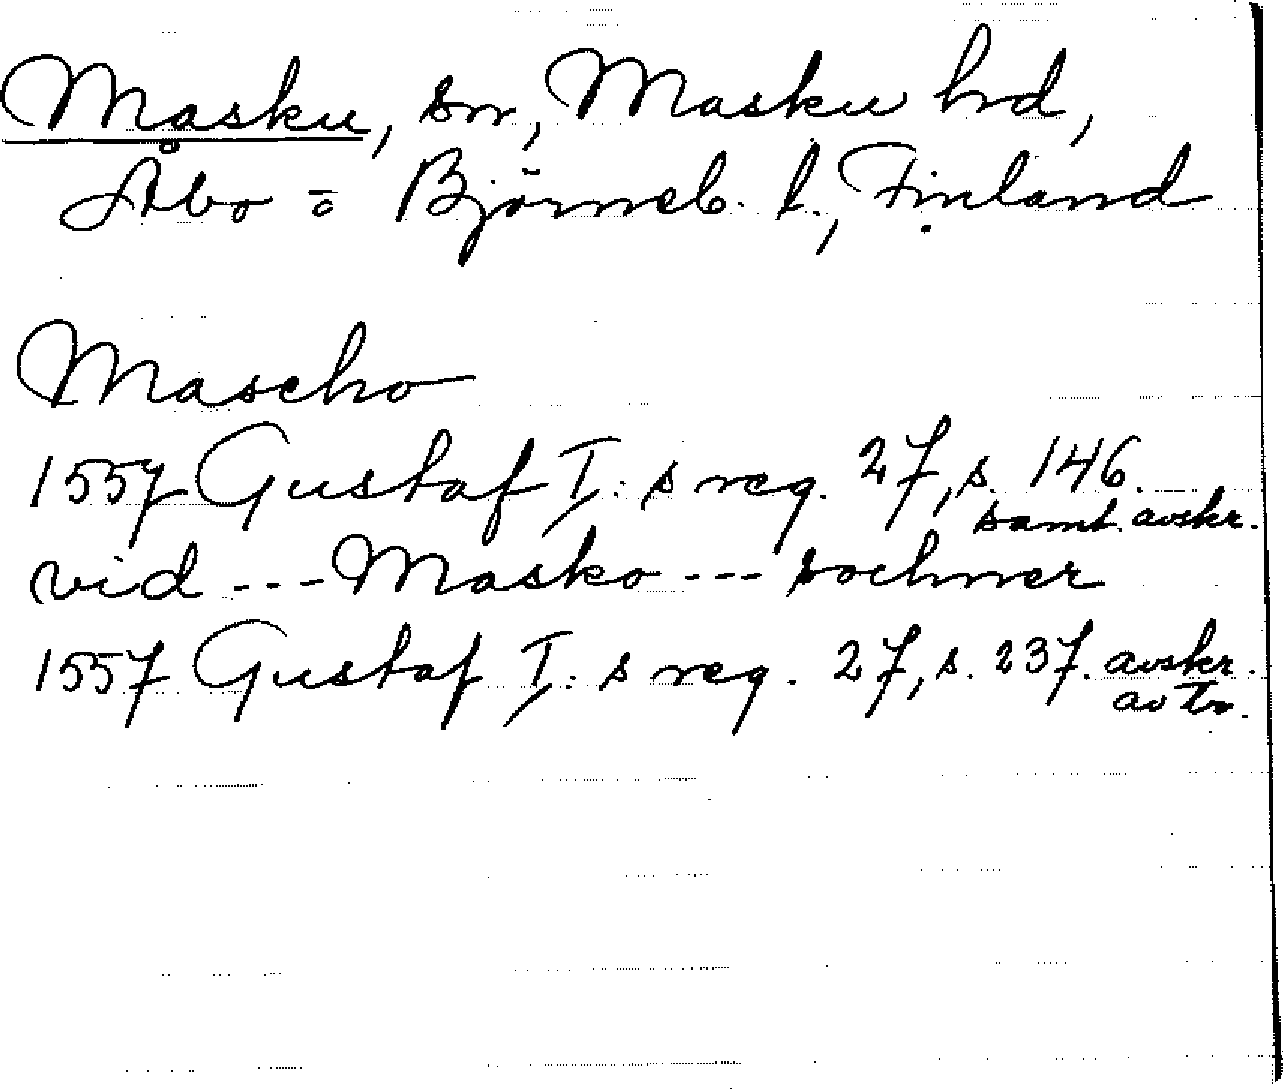 Masku, sn, Masku hd,
Åbo = Björneb. l., Finland
Mascho
1557 Gustaf I: s reg. 27, s. 146.
samt. avskr.
vid --- Masko --- sochner
1557 Gustaf I: s reg. 27, s. 237. avskr.
av tr.